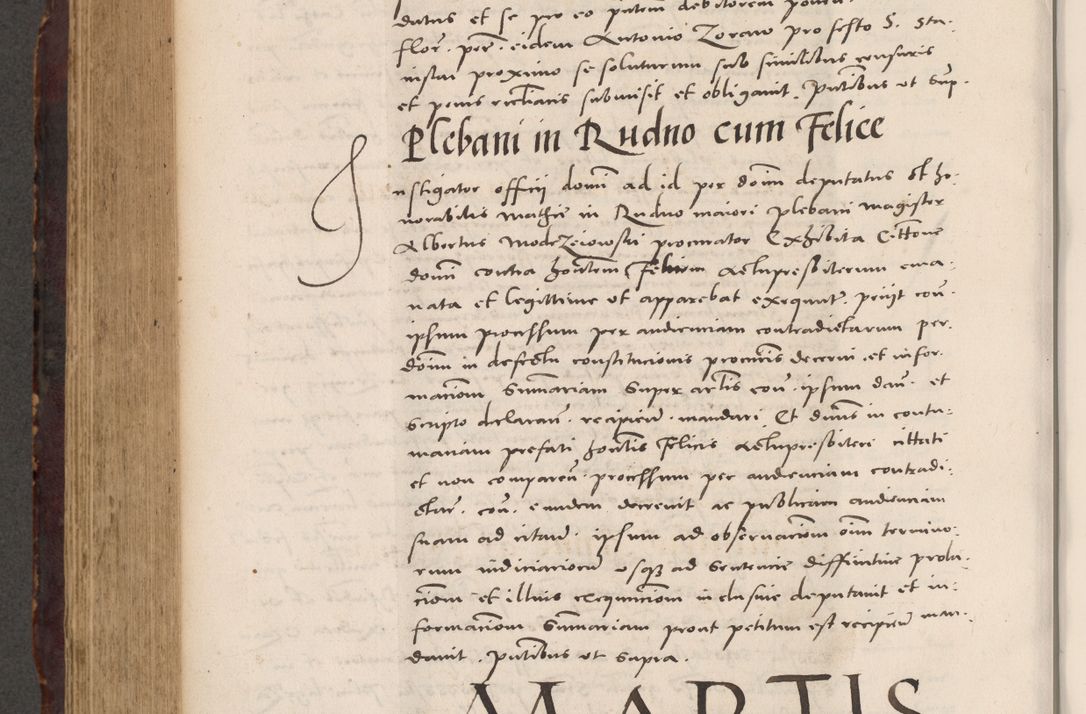 datus et se pro eo putem debitorem
flor. per. eidem Antonio Zoraw pro festo S. Sta-
inslai proximo se soluturum sub similibus censuris
et penis recliaris submisit et obligavit. Pntibus ut sup.
Plebani in Rudno cum Felice
Instigator officii domi ad id per doim deputatus et ho-
norabilis Mathie in Rudno maiori plebani magister
Albertus procurator Exhibita Cittone
domi contra hontem Felicem Altupresbiterum ema-
nata et legittime ut apparebat exequut. petiit con-
ipsum processum per audienciam contradictarum per
doim in defectu constitucionis procuris decerni et infor-
macionem Summariam super artlis con. ipsum dan. et
scripto declarand. recipiend. mandari. Et dnus in contu-
maciam prefati hontis Felicis Altupresbiteri cittati
et non comparen. processum per audienciam contradi-
ctar. con. eundem decrevit ac publicam audienciam
suam ad citand. ipsum ad observacionem oim termino-
rum iudiciariorum usque ad Sentencie diffinitive prola-
cionem et illius exequucionem inclusive deputavit et in-
formacionem Summariam prout petitum est recipiend man-
davit. Pntibus ut supra.
MARTIS